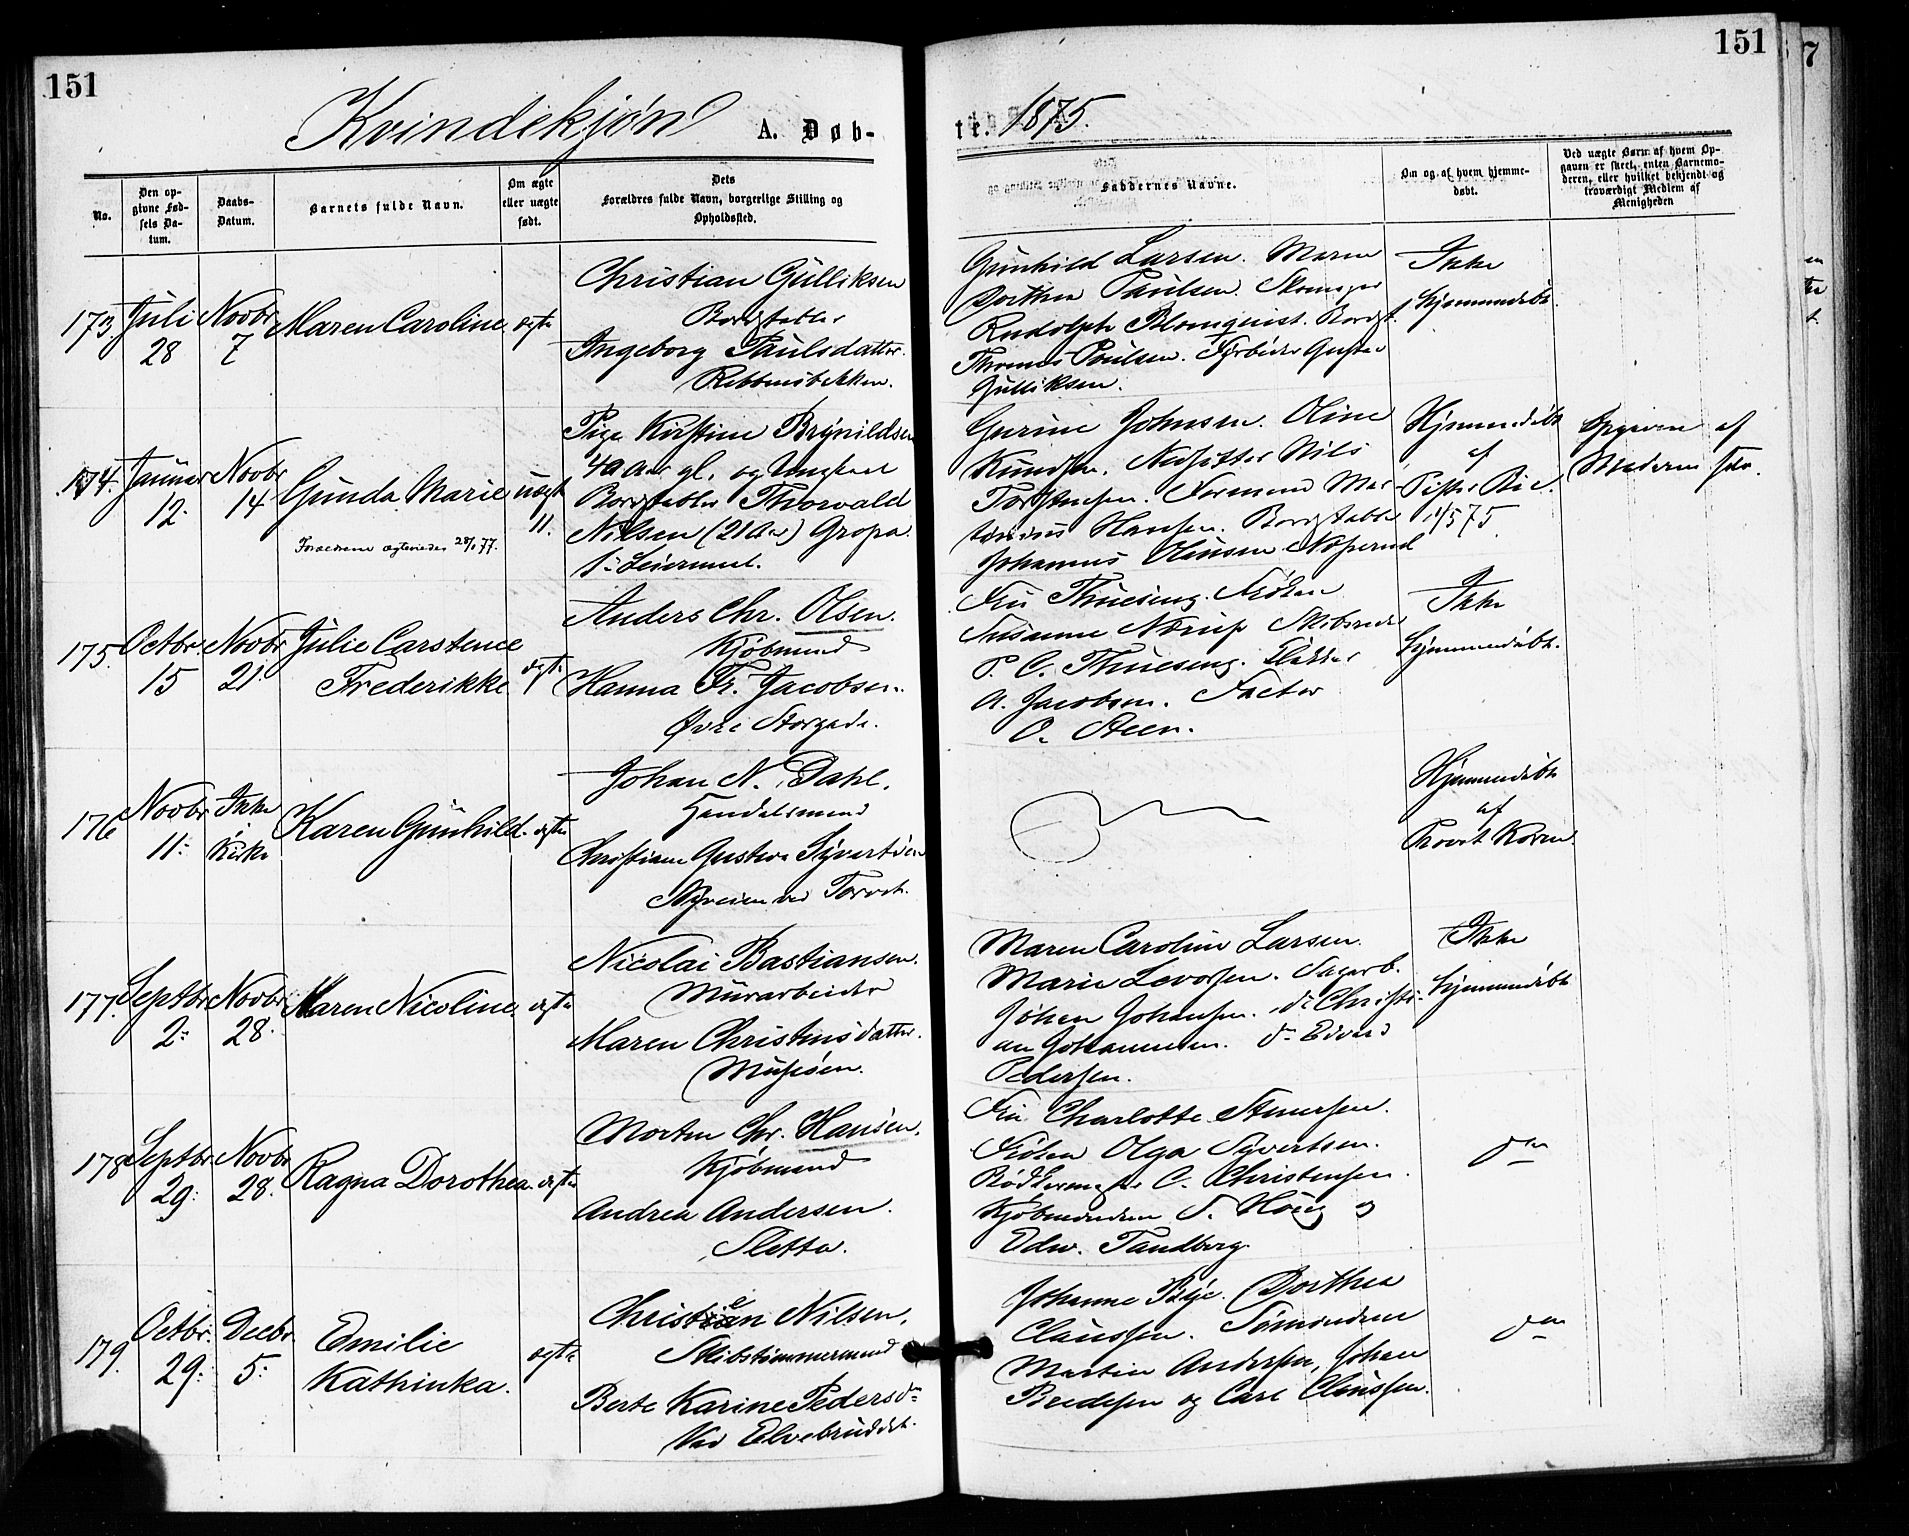 151
151
7
Kvindekjøn A. Døb-
te. 1875.
No.
Den op-
givne Fød-
sels Da-
tum.
Daabs-
Datum.
Barnets fulde Navn.
Om ægte
eller uægte
født.
Dets
Forældres fulde Navn, borgerlige Stilling og
Opholdssted.
Faddernes Navne.
Om og af hvem hjemme-
døbt.
Ved uægte Børn af hvem Op-
gaven er skeet, enten Barnemo-
deren, eller hvilket bekjendt og
troværdigt Medlem af
Menigheden
173. Juli 28 Novbr 7 Maren Caroline ægte
Christian Gulliksen
Bordtabler
Ingeborg Paulsdatter.
Rebbensbekken.
Gunhild Larsen. Maren
Dorthea Paulsen. Skomager
Rudolph Blomqvist. Bordt.
Thomas Poulsen. Gustav
Gulliksen.
Ikke
hjemmedøbt.
174. Januar 12. Novbr 14 Gunda Marie uægte
11.
Forældrene ægteviedes 28/1 77.
Pige Kirstine Brynildsen
40 Aar gl. og Ungkarl
Bordtabler Thorvald
Nilsen (21 Aar) Gropa.
1ste Leiermaal.
Gurine Johnsen. Oline
Knudsen. Nils
Torstensen. Mar-
tinius Hansen. Bordtabler
Johannes Olausen
Hjemmedøbt
af
Bie.
75
Opgiven af
Moderen selv.
175. Octbr. 15 Novbr 21. Julie Carstence
Frederikke ægte
Anders Chr. Olsen.
Kjøbmand
Hanna Fr. Jacobsen.
Øvre Storgade.
Fru Thuesing. Frøken
Susanne Nørup Skibsreder
P. C. Thuesing.
A. Jacobsen. Factor
O. Steen.
Ikke
hjemmedøbt.
176 Novbr 11. Ikke i Kirke Karen Gunhild. ægte
Johan N. Dahl.
Handelsmand
Christiane Gustava Syvertsen
Nyveien ved Torvet.
Hjemmedøbt
af
Provst Koren.
177. Septbr 2. Novbr 28. Karen Nicoline. ægte
Nicolai Bastiansen.
Murarbeider
Maren Christensdatter.
Musesøen.
Maren Caroline Larsen.
Marie Levorsen. Sagarb.
Johan Johansen. do Christi-
an Johannesen. do Edvard
Pedersen.
Ikke
hjemmedøbt
178 Septbr 29. Novbr 28. Ragna Dorothea. ægte
Morten Chr. Hansen.
Kjøbmand
Andrea Andersen.
Sletta.
Fru Charlotte Steensen.
Frøken Olga Syvertsen.
Bødkermester C. Christensen.
Kjøbmændene S. Houg og
Edw. Tandberg.
do
179. Octbr. 29. Decbr. 5. Emilie
Kathinka. ægte
Christian Nilsen,
Skibstømmermand
Berte Karine Pedersdr
Ved Elvebruddet.
Johanne Bye. Dorthea
Claussen. Sømændene
Martin Andersen, Johan
Bredesen og Carl Claussen.
do